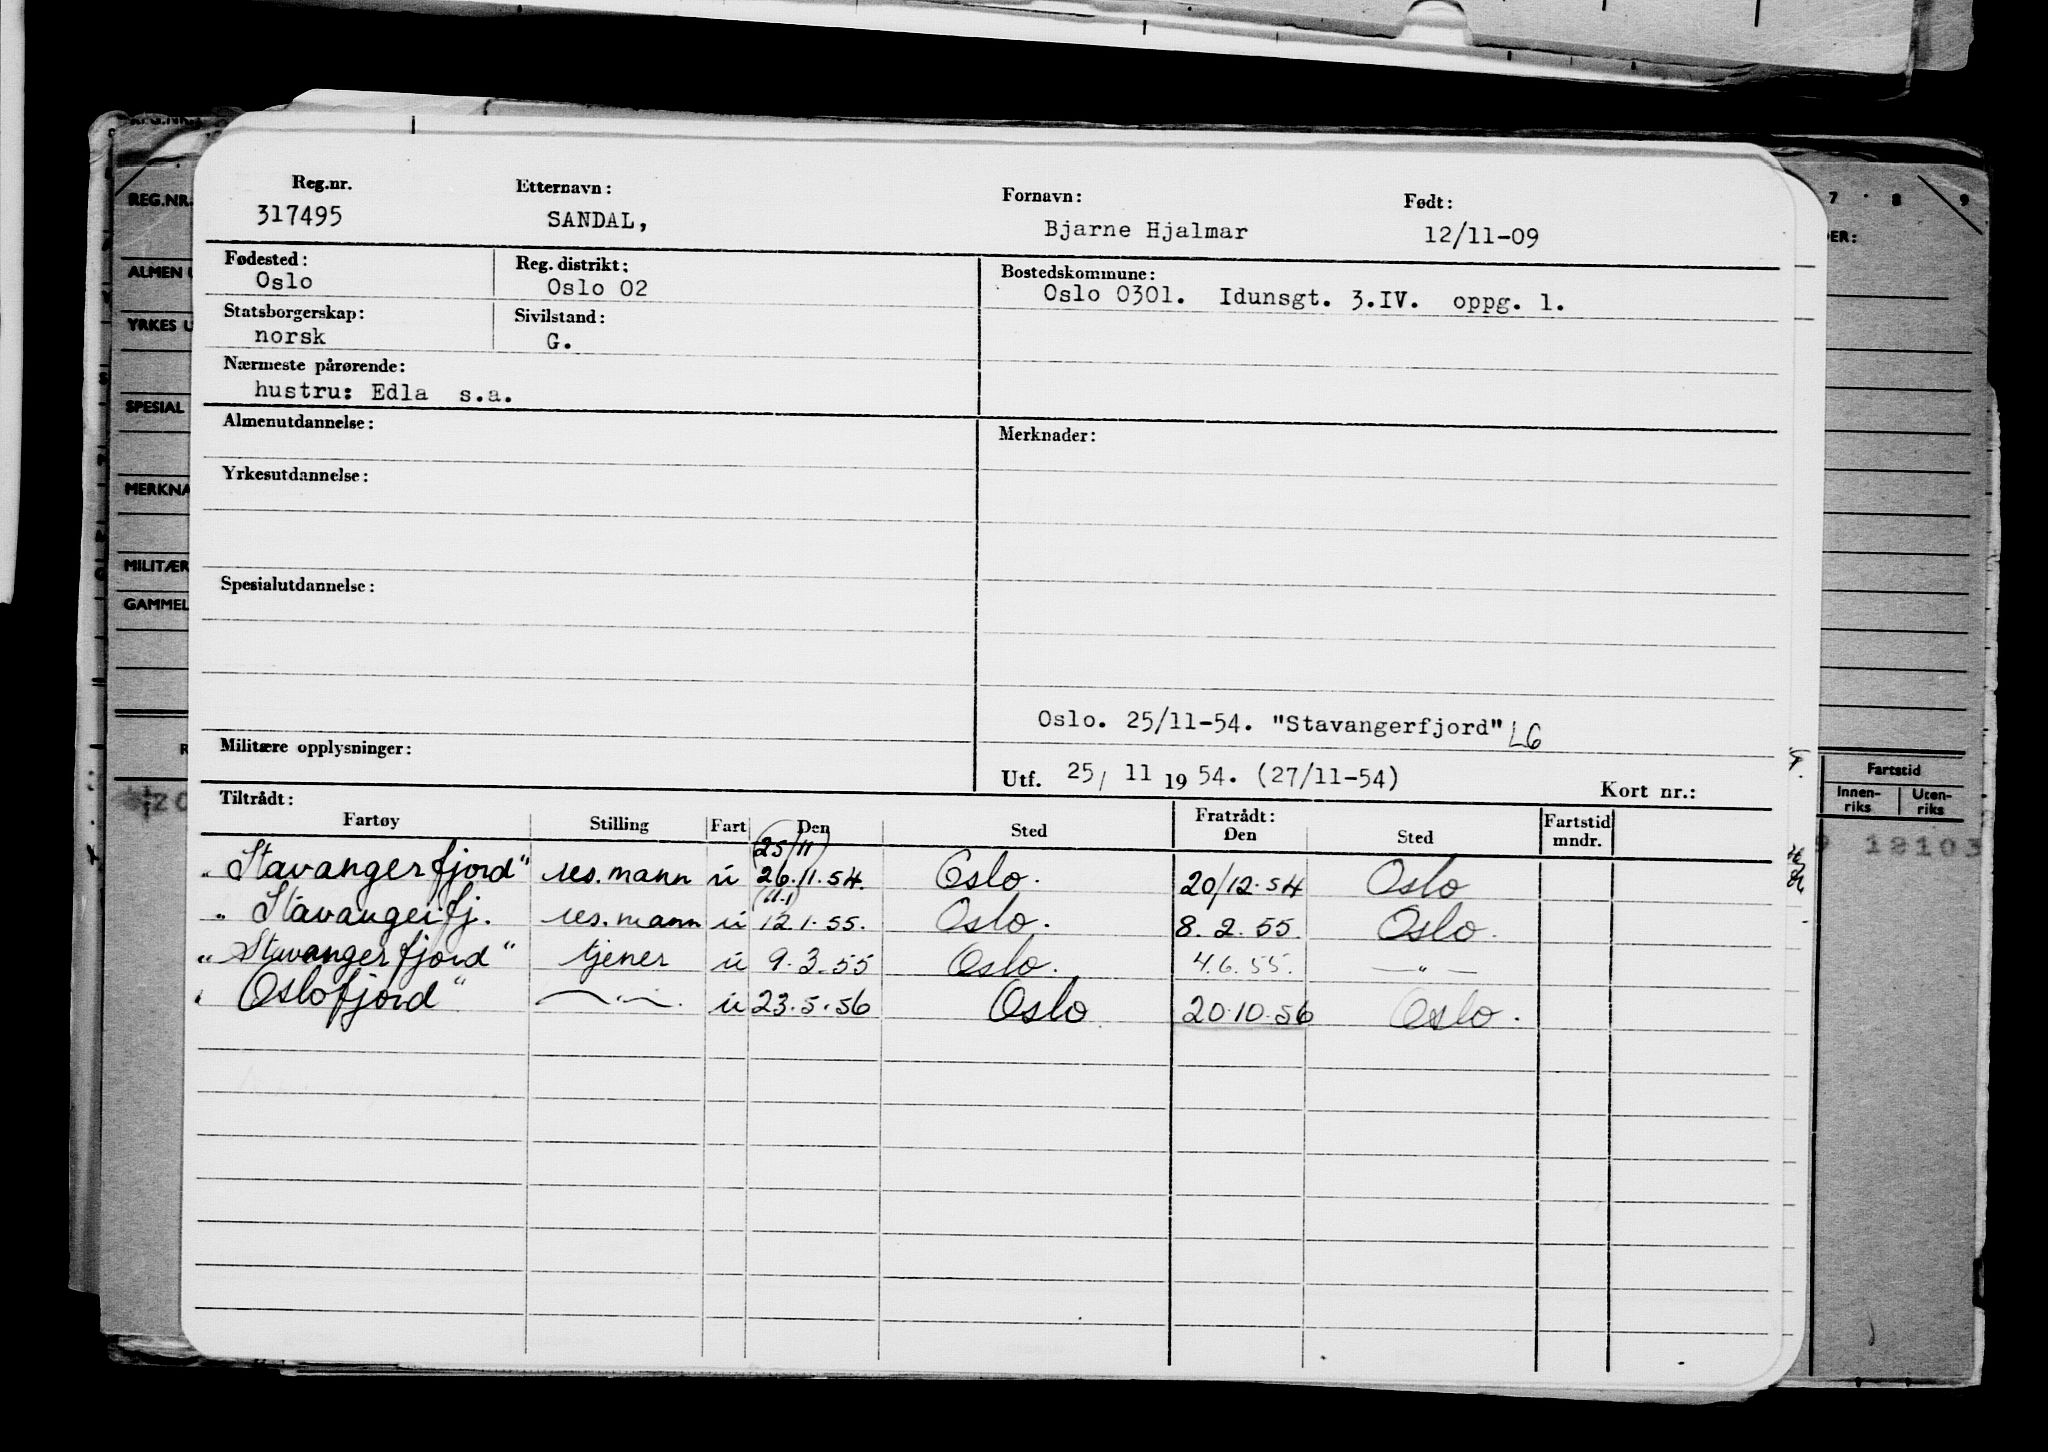 Reg.nr. Etternavn: Fornavn: Født:
317495 SANDAL, Bjarne Hjalmar 12/11-09
Fødested: Reg. distrikt: Bostedskommune:
Oslo Oslo 02 Oslo 0301. Idunsgt. 3.IV. oppg. 1.
Statsborgerskap: Sivilstand:
norsk G.
Nærmeste pårørende:
hustru: Edla s.a.
Almenutdannelse: Merknader:
Yrkesutdannelse:
Spesialutdannelse:
Oslo. 25/11-54. "Stavangerfjord" LG
Militære opplysninger:
Utf. 25/ 11 19 54. (27/11-54) Kort nr.:
Tiltrådt: Fratrådt: Fartstid
Fartøy Stilling Fart Den Sted Den Sted mndr.
(25/11)
"Stavangerfjord" res.mann u 26.11.54. Oslo. 20/12.54 Oslo
(11.1)
" Stavangerfj. res.mann u 12.1.55. Oslo. 8.2.55 Oslo.
"Stavangerfjord" tjener u 9.3.55 Oslo. 4.6.55. —"—
"Oslofjord" —"—. u 23.5.56 Oslo 20.10.56 Oslo.
REG.NR.
ALMEN U
YRKES U
SPESIAL
MERKNA
MILITÆR
GAMMEL
7 8 9
DER:
Fartstid
Innen-riks Uten-riks
18103